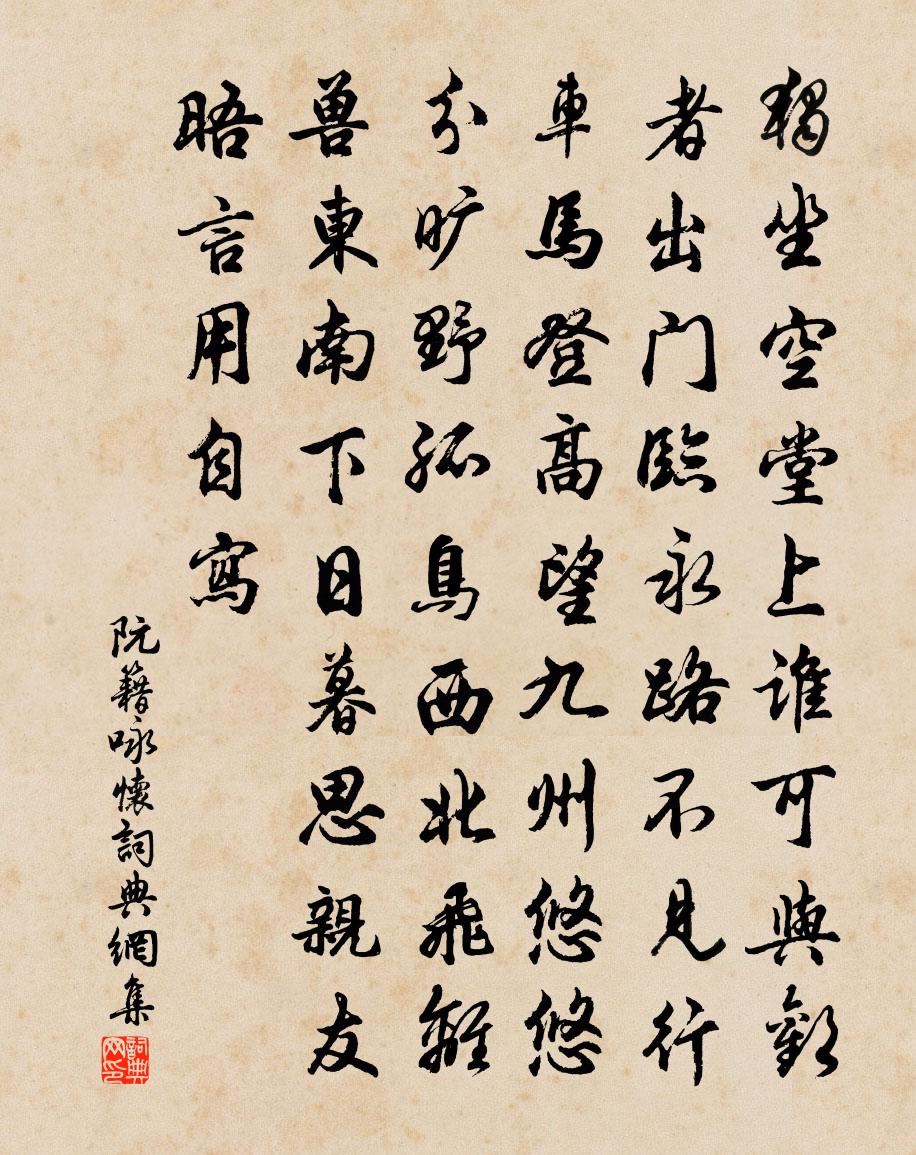 獨坐空堂上誰可與歡
者出门臨永路不見行
車馬登高望九州悠悠
分旷野孤鳥西北飛離
兽東南下日暮思親友
晤言用自寫
阮籍咏懷詞典網集
詞典网印